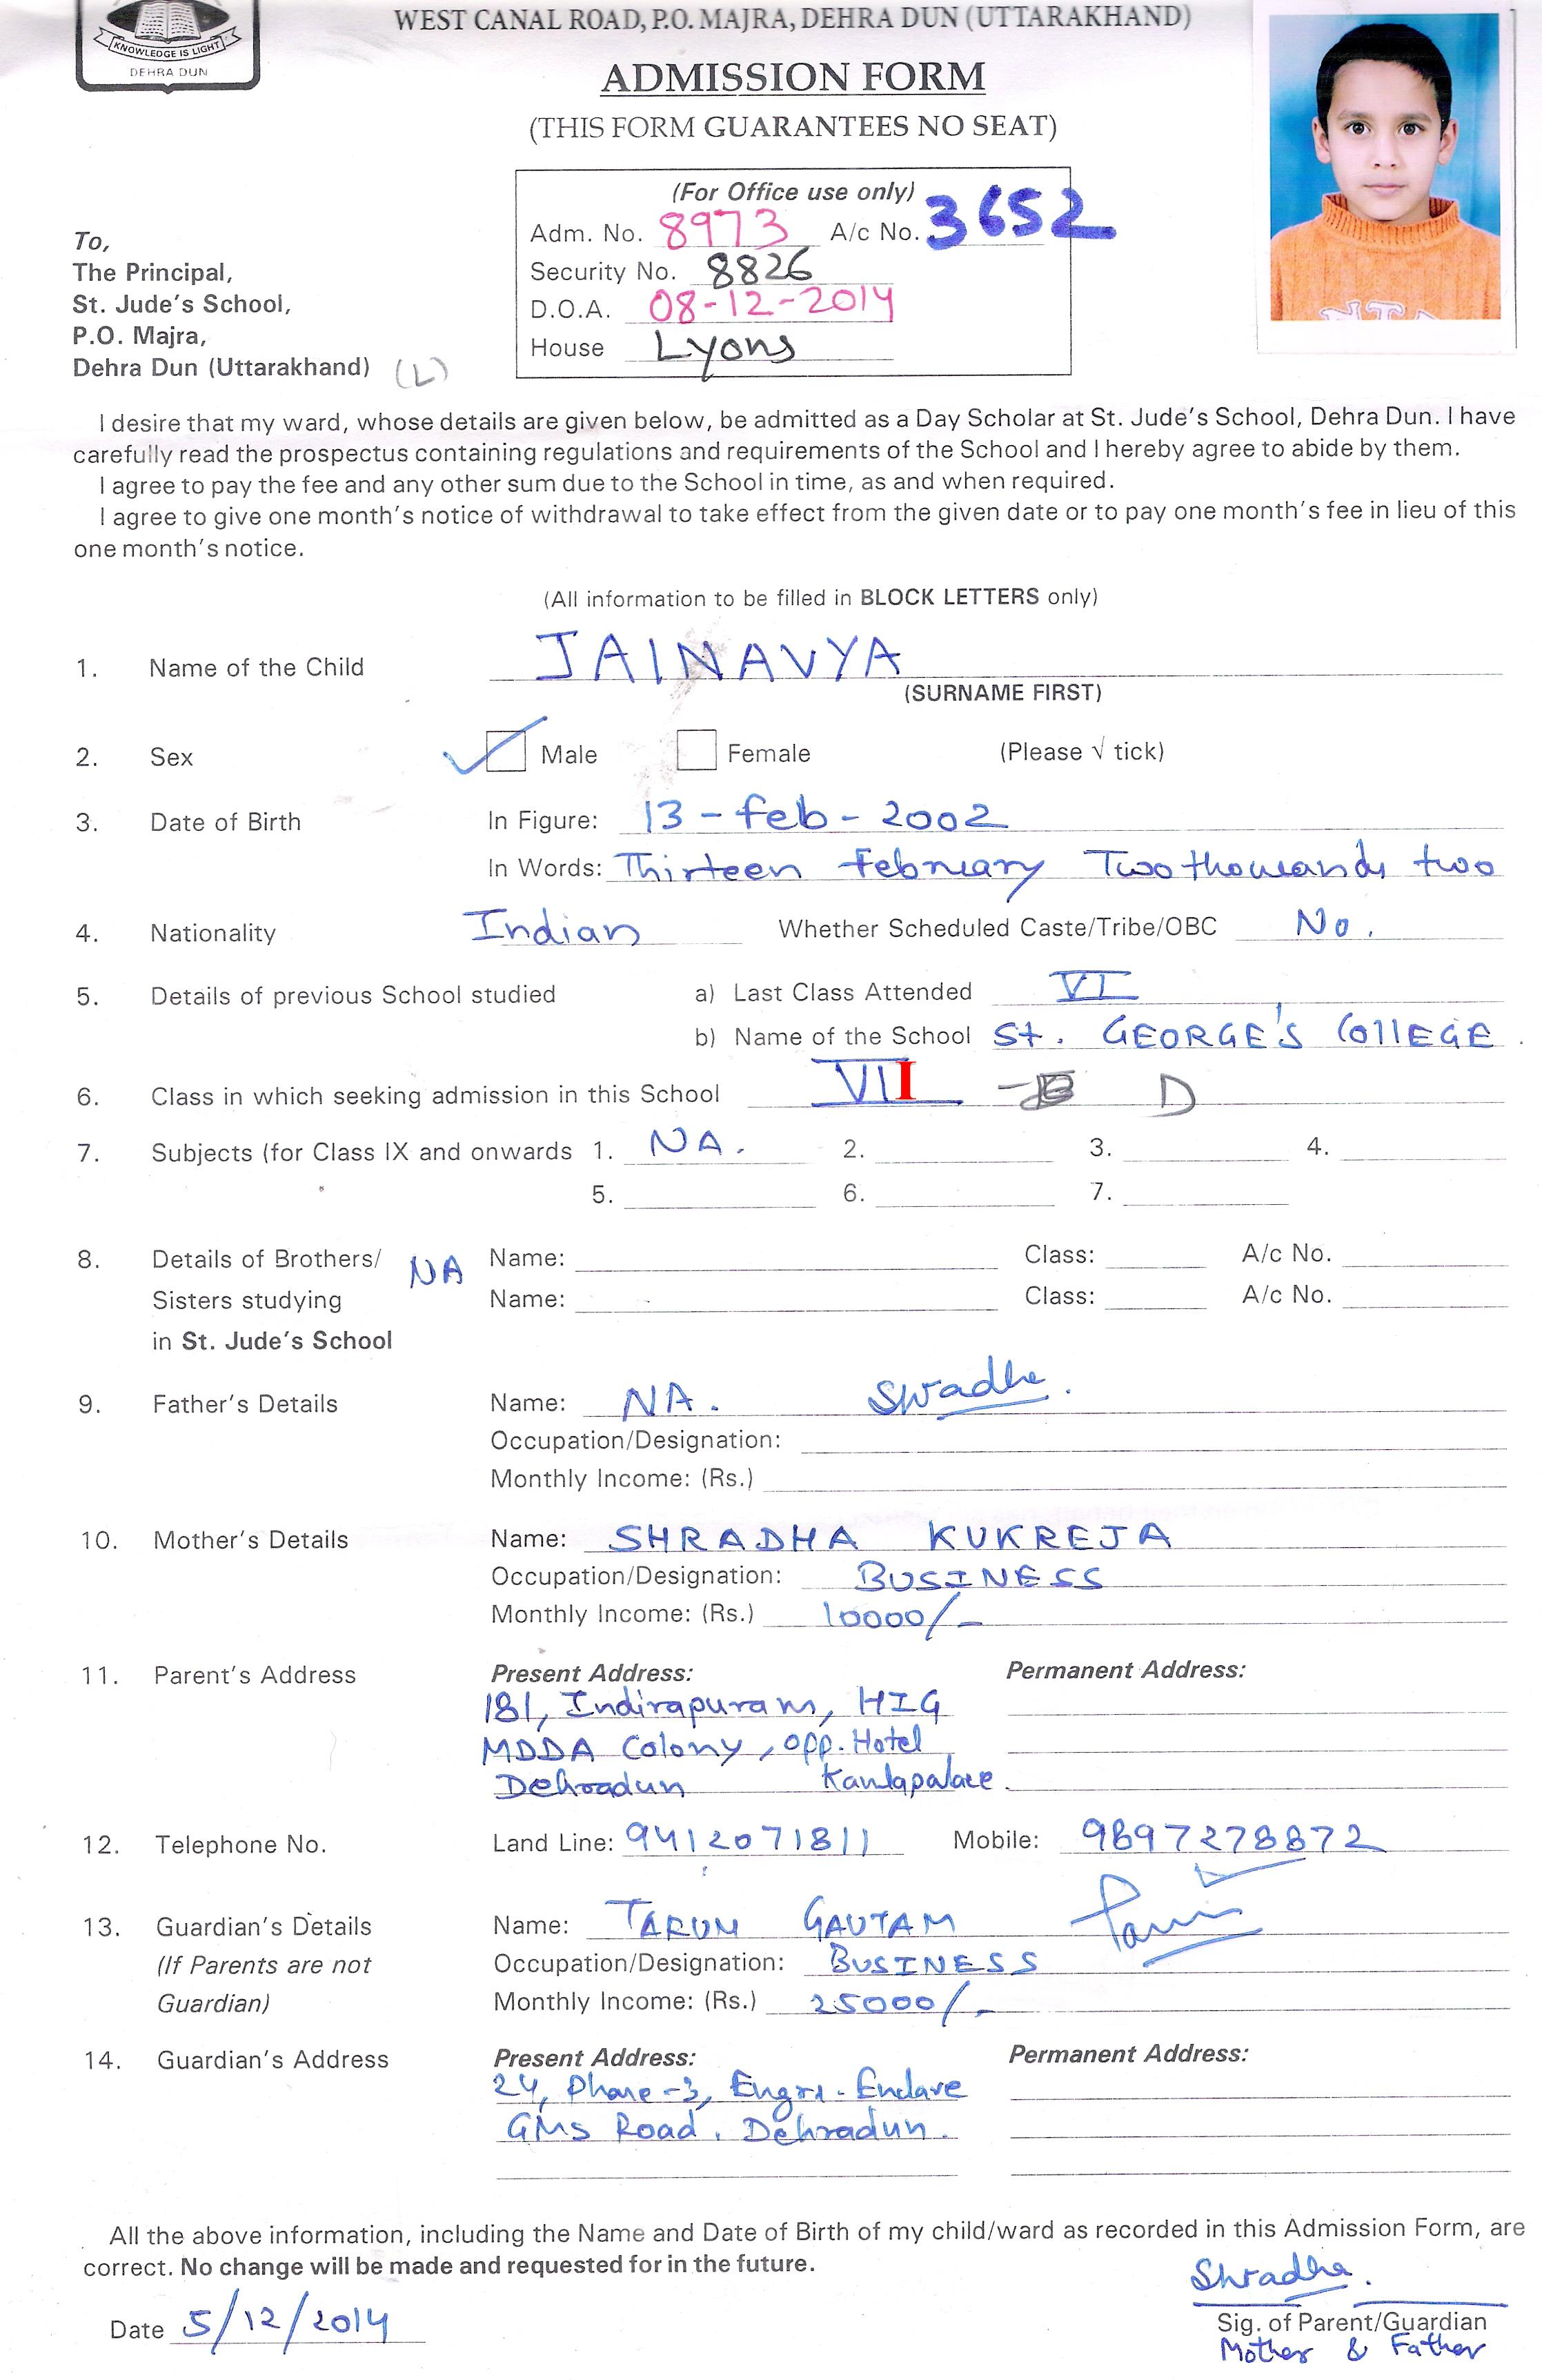 KNOWLEDGE IS LIGHT
DEHRA DUN
WEST CANAL ROAD, P.O. MAJRA, DEHRA DUN (UTTARAKHAND)
ADMISSION FORM
(THIS FORM GUARANTEES NO SEAT)
(For Office use only)
Adm. No. 8973 A/c No. 3652
Security No. 8826
D.O.A. 08-12-2014
House Lyons
To,
The Principal,
St. Jude's School,
P.O. Majra,
Dehra Dun (Uttarakhand) (L)
I desire that my ward, whose details are given below, be admitted as a Day Scholar at St. Jude's School, Dehra Dun. I have
carefully read the prospectus containing regulations and requirements of the School and I hereby agree to abide by them.
I agree to pay the fee and any other sum due to the School in time, as and when required.
I agree to give one month's notice of withdrawal to take effect from the given date or to pay one month's fee in lieu of this
one month's notice.
(All information to be filled in BLOCK LETTERS only)
1. Name of the Child JAINAVYA
(SURNAME FIRST)
2. Sex ✓ Male Female (Please √ tick)
3. Date of Birth In Figure: 13-feb-2002
In Words: Thirteen February Two thousands two
4. Nationality Indian Whether Scheduled Caste/Tribe/OBC No.
5. Details of previous School studied a) Last Class Attended VI
b) Name of the School St. GEORGE'S COllEGE.
6. Class in which seeking admission in this School VII - D
7. Subjects (for Class IX and onwards 1. NA. 2. 3. 4.
5. 6. 7.
8. Details of Brothers/ NA Name: Class: A/c No.
Sisters studying Name: Class: A/c No.
in St. Jude's School
9. Father's Details Name: NA. Shradha.
Occupation/Designation:
Monthly Income: (Rs.)
10. Mother's Details Name: SHRADHA KUKREJA
Occupation/Designation: BUSINESS
Monthly Income: (Rs.) 10000/-
11. Parent's Address Present Address: Permanent Address:
181, Indirapuram, HIG
MDDA Colony, opp. Hotel
Dehradun
12. Telephone No. Land Line: 9412071811 Mobile: 9897278872
13. Guardian's Details Name: TARUN GAUTAM
(If Parents are not Occupation/Designation: BUSINESS
Guardian) Monthly Income: (Rs.) 25000/-
14. Guardian's Address Present Address: Permanent Address:
24, Phase-3, Engrs. Enclave
GMS Road, Dehradun.
All the above information, including the Name and Date of Birth of my child/ward as recorded in this Admission Form, are
correct. No change will be made and requested for in the future.
Shradha.
Date 5/12/2014 Sig. of Parent/Guardian
Mother & Father